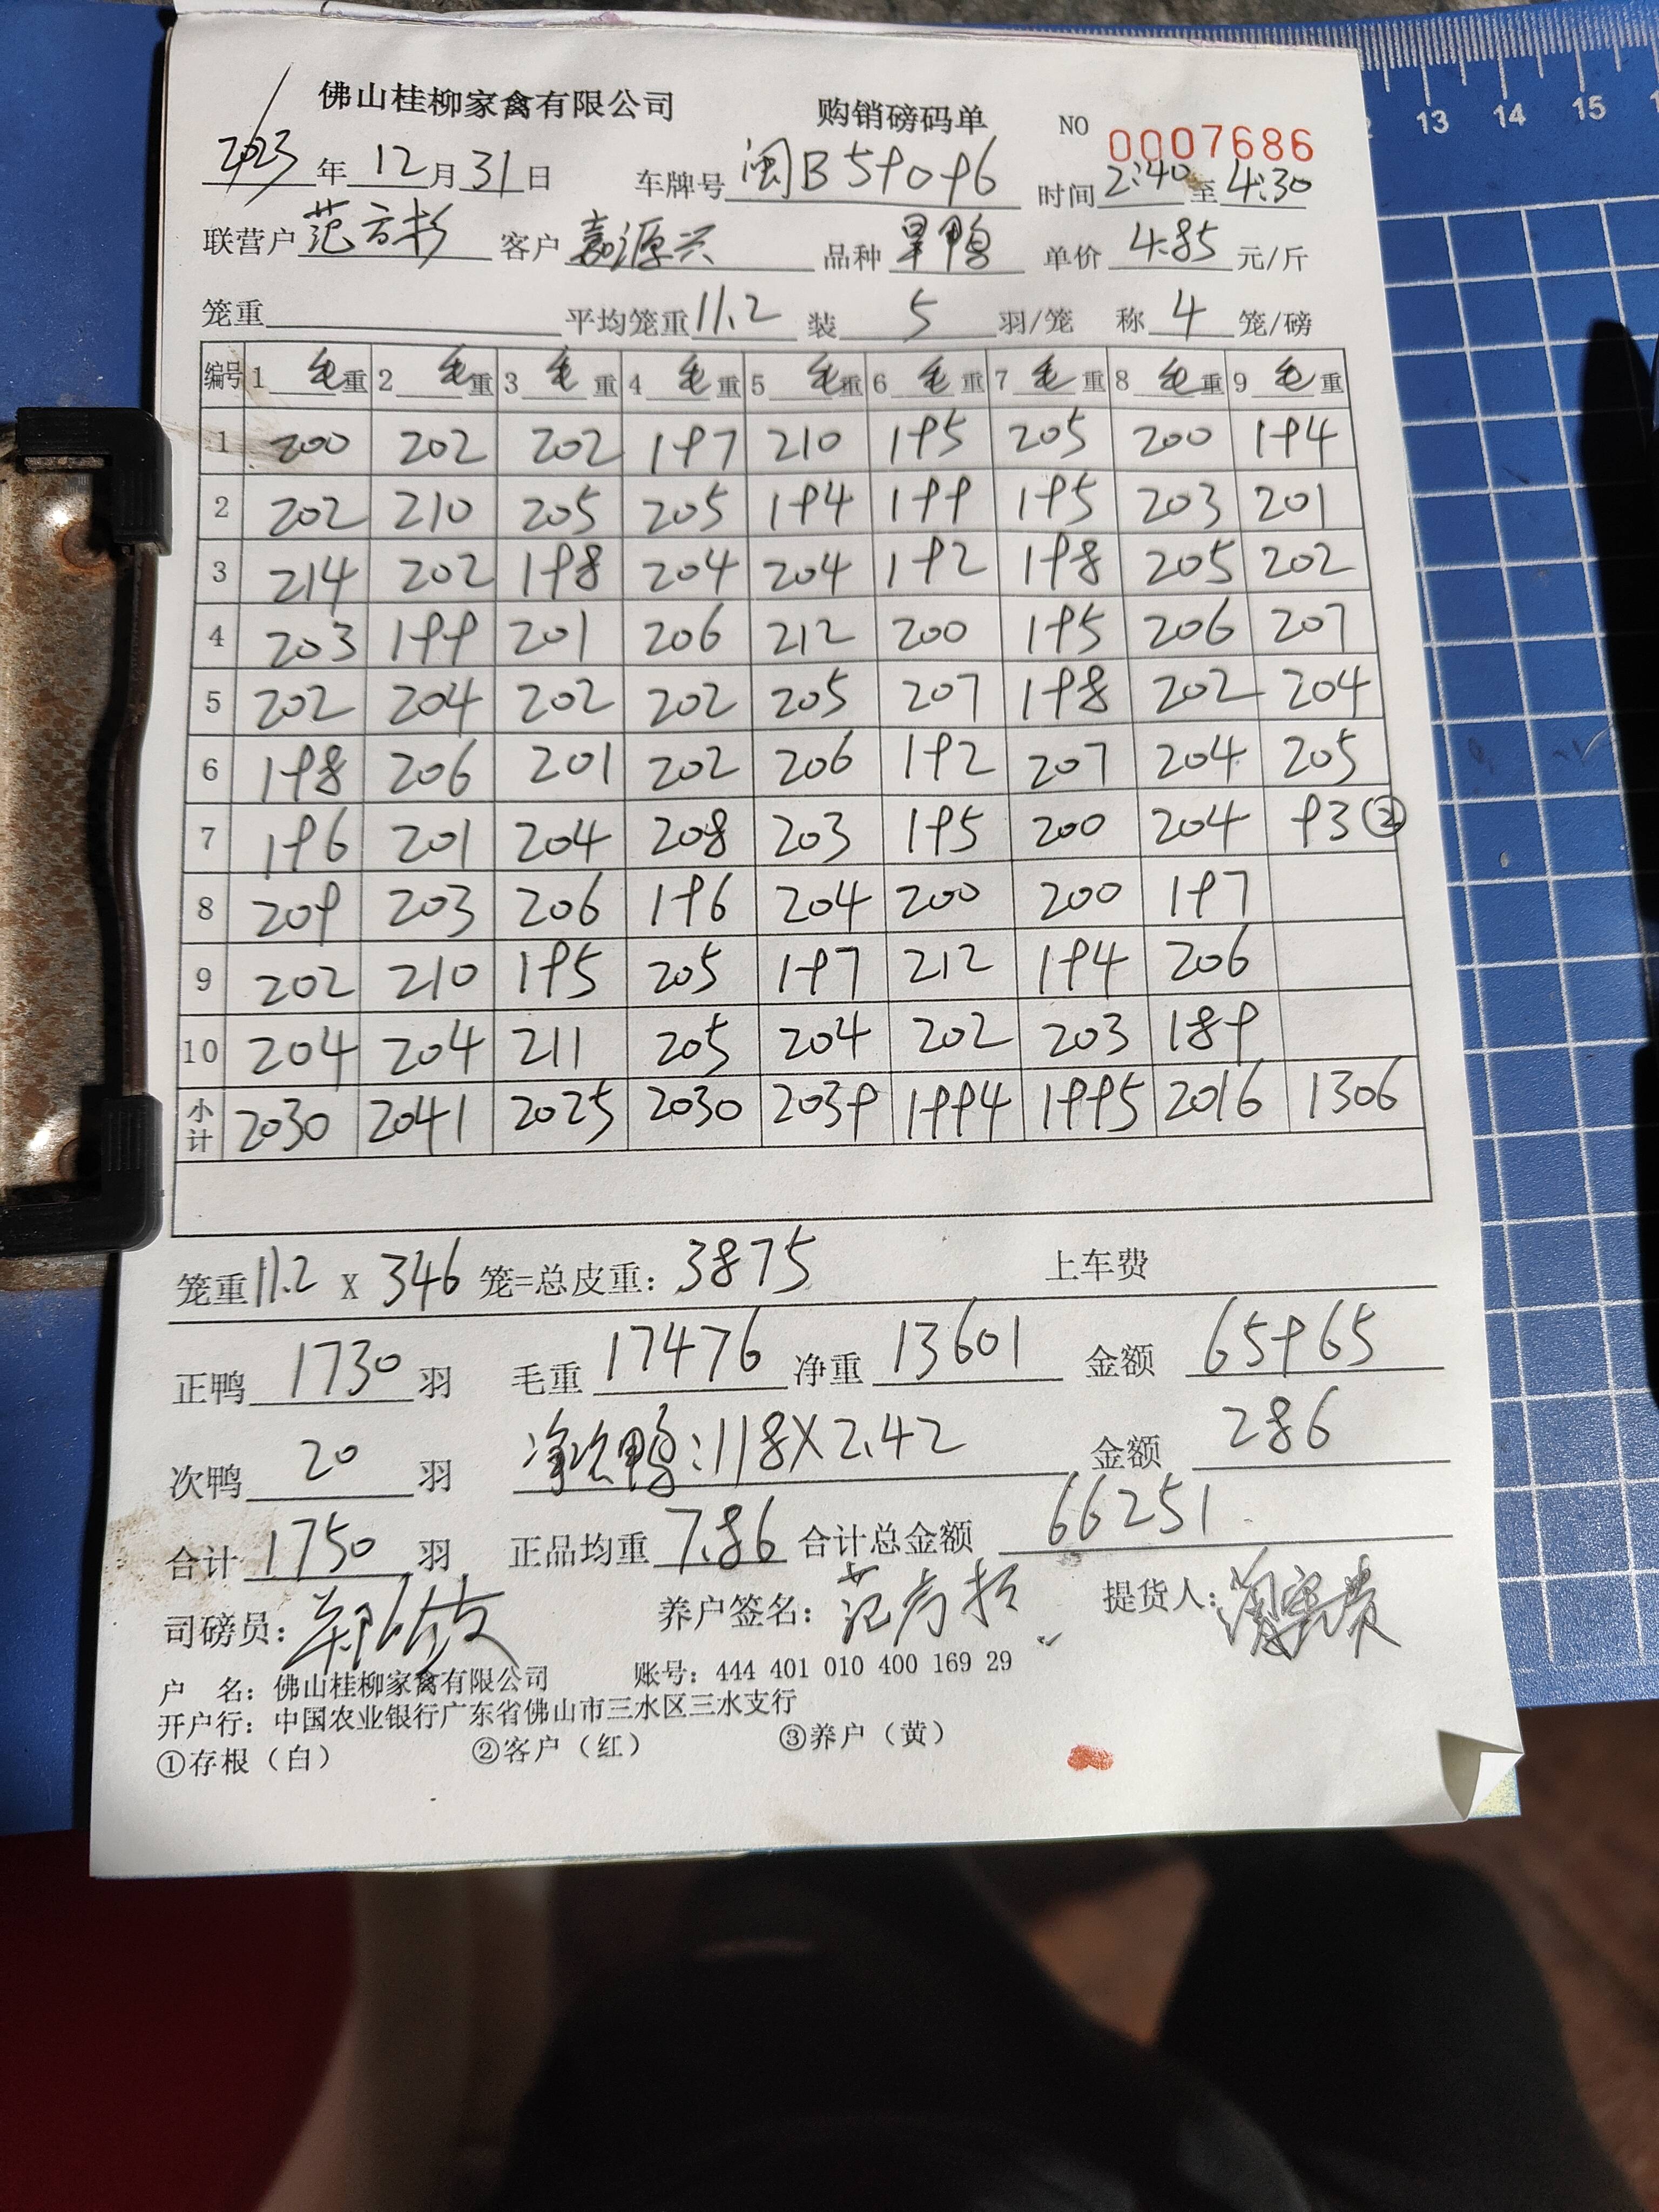 佛山桂柳家禽有限公司 购销磅码单 NO 0007686
2023年12月31日 车牌号 闽B59096 时间 2:40 至 4:30
联营户 范方杉 客户 嘉源兴 品种 旱鸭 单价 4.85 元/斤
笼重 平均笼重 11.2 装 5 羽/笼 称 4 笼/磅
编号 1 毛重 2 毛重 3 毛重 4 毛重 5 毛重 6 毛重 7 毛重 8 毛重 9 毛重
1 200 202 202 197 210 195 205 200 194
2 202 210 205 205 194 199 195 203 201
3 214 202 198 204 204 192 198 205 202
4 203 199 201 206 212 200 195 206 207
5 202 204 202 202 205 207 198 202 204
6 198 206 201 202 206 192 207 204 205
7 196 201 204 208 203 195 200 204 93②
8 209 203 206 196 204 200 200 197
9 202 210 195 205 197 212 194 206
10 204 204 211 205 204 202 203 189
小计 2030 2041 2025 2030 2039 1994 1995 2016 1306
笼重 11.2 X 346 笼=总皮重: 3875 上车费
正鸭 1730 羽 毛重 17476 净重 13601 金额 65965
次鸭 20 羽 净次鸭:118X2.42 金额 286
合计 1750 羽 正品均重 7.86 合计总金额 66251
司磅员: 养户签名: 范方杉 提货人:
户 名: 佛山桂柳家禽有限公司 账号: 444 401 010 400 169 29
开户行: 中国农业银行广东省佛山市三水区三水支行
①存根（白） ②客户（红） ③养户（黄）
12 13 14 15